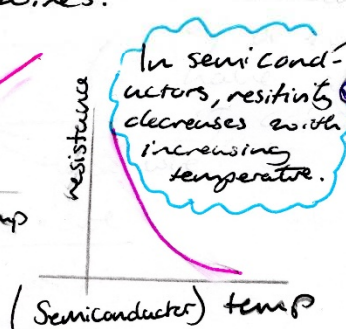 wires.
In semicond-
uctors, resitivity
decreases with
increasing
temperature.
resistance
mp
(Semiconductor) temp